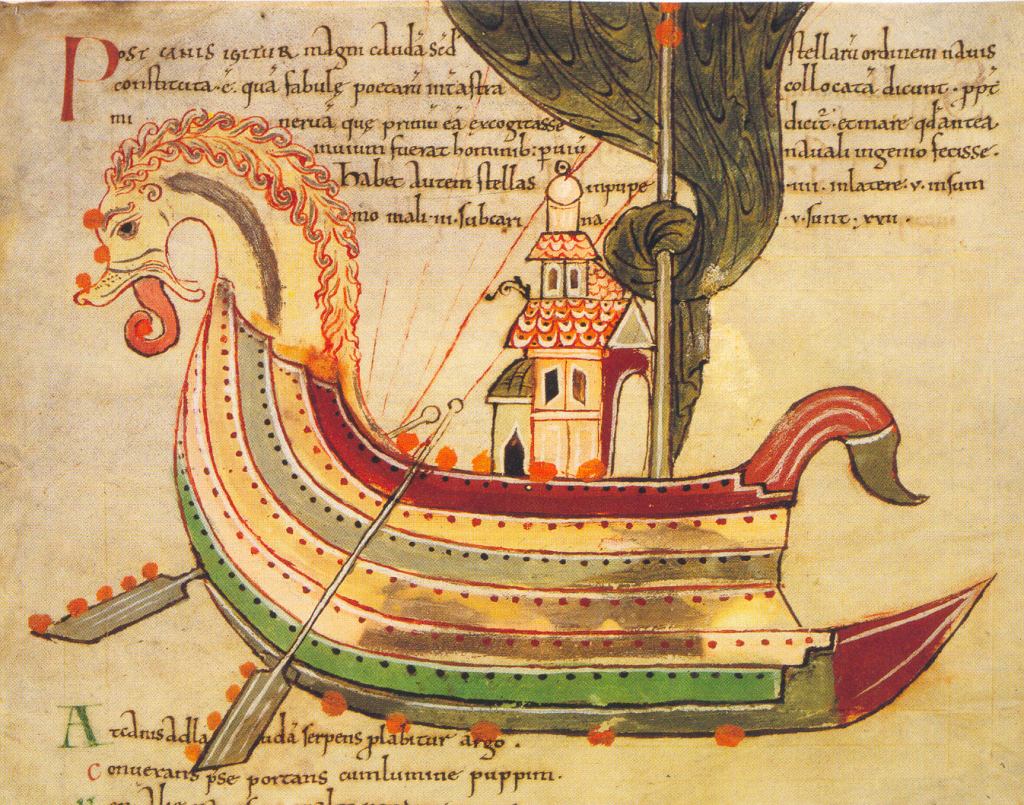 Post canis igitur magni caudā sed stellarū ordinem nauis
constituta ·ē· quā fabulę poetarū int̄ astra collocatā dicunt · ppt̄
mi nerua quę primū eā excogitasse dicit̄ · et mare qd antea
inuium fuerat hominib: p suū nauali ingenio fecisse ·
Habet autem stellas in puppe ·iiii· in latere ·v· in sum
mo mali ·iii· sub cari na ·v· sunt · xxvii ·
At canis ad la udā serpens plabitur argo .
conuersam p se portans cum lumine puppim ·